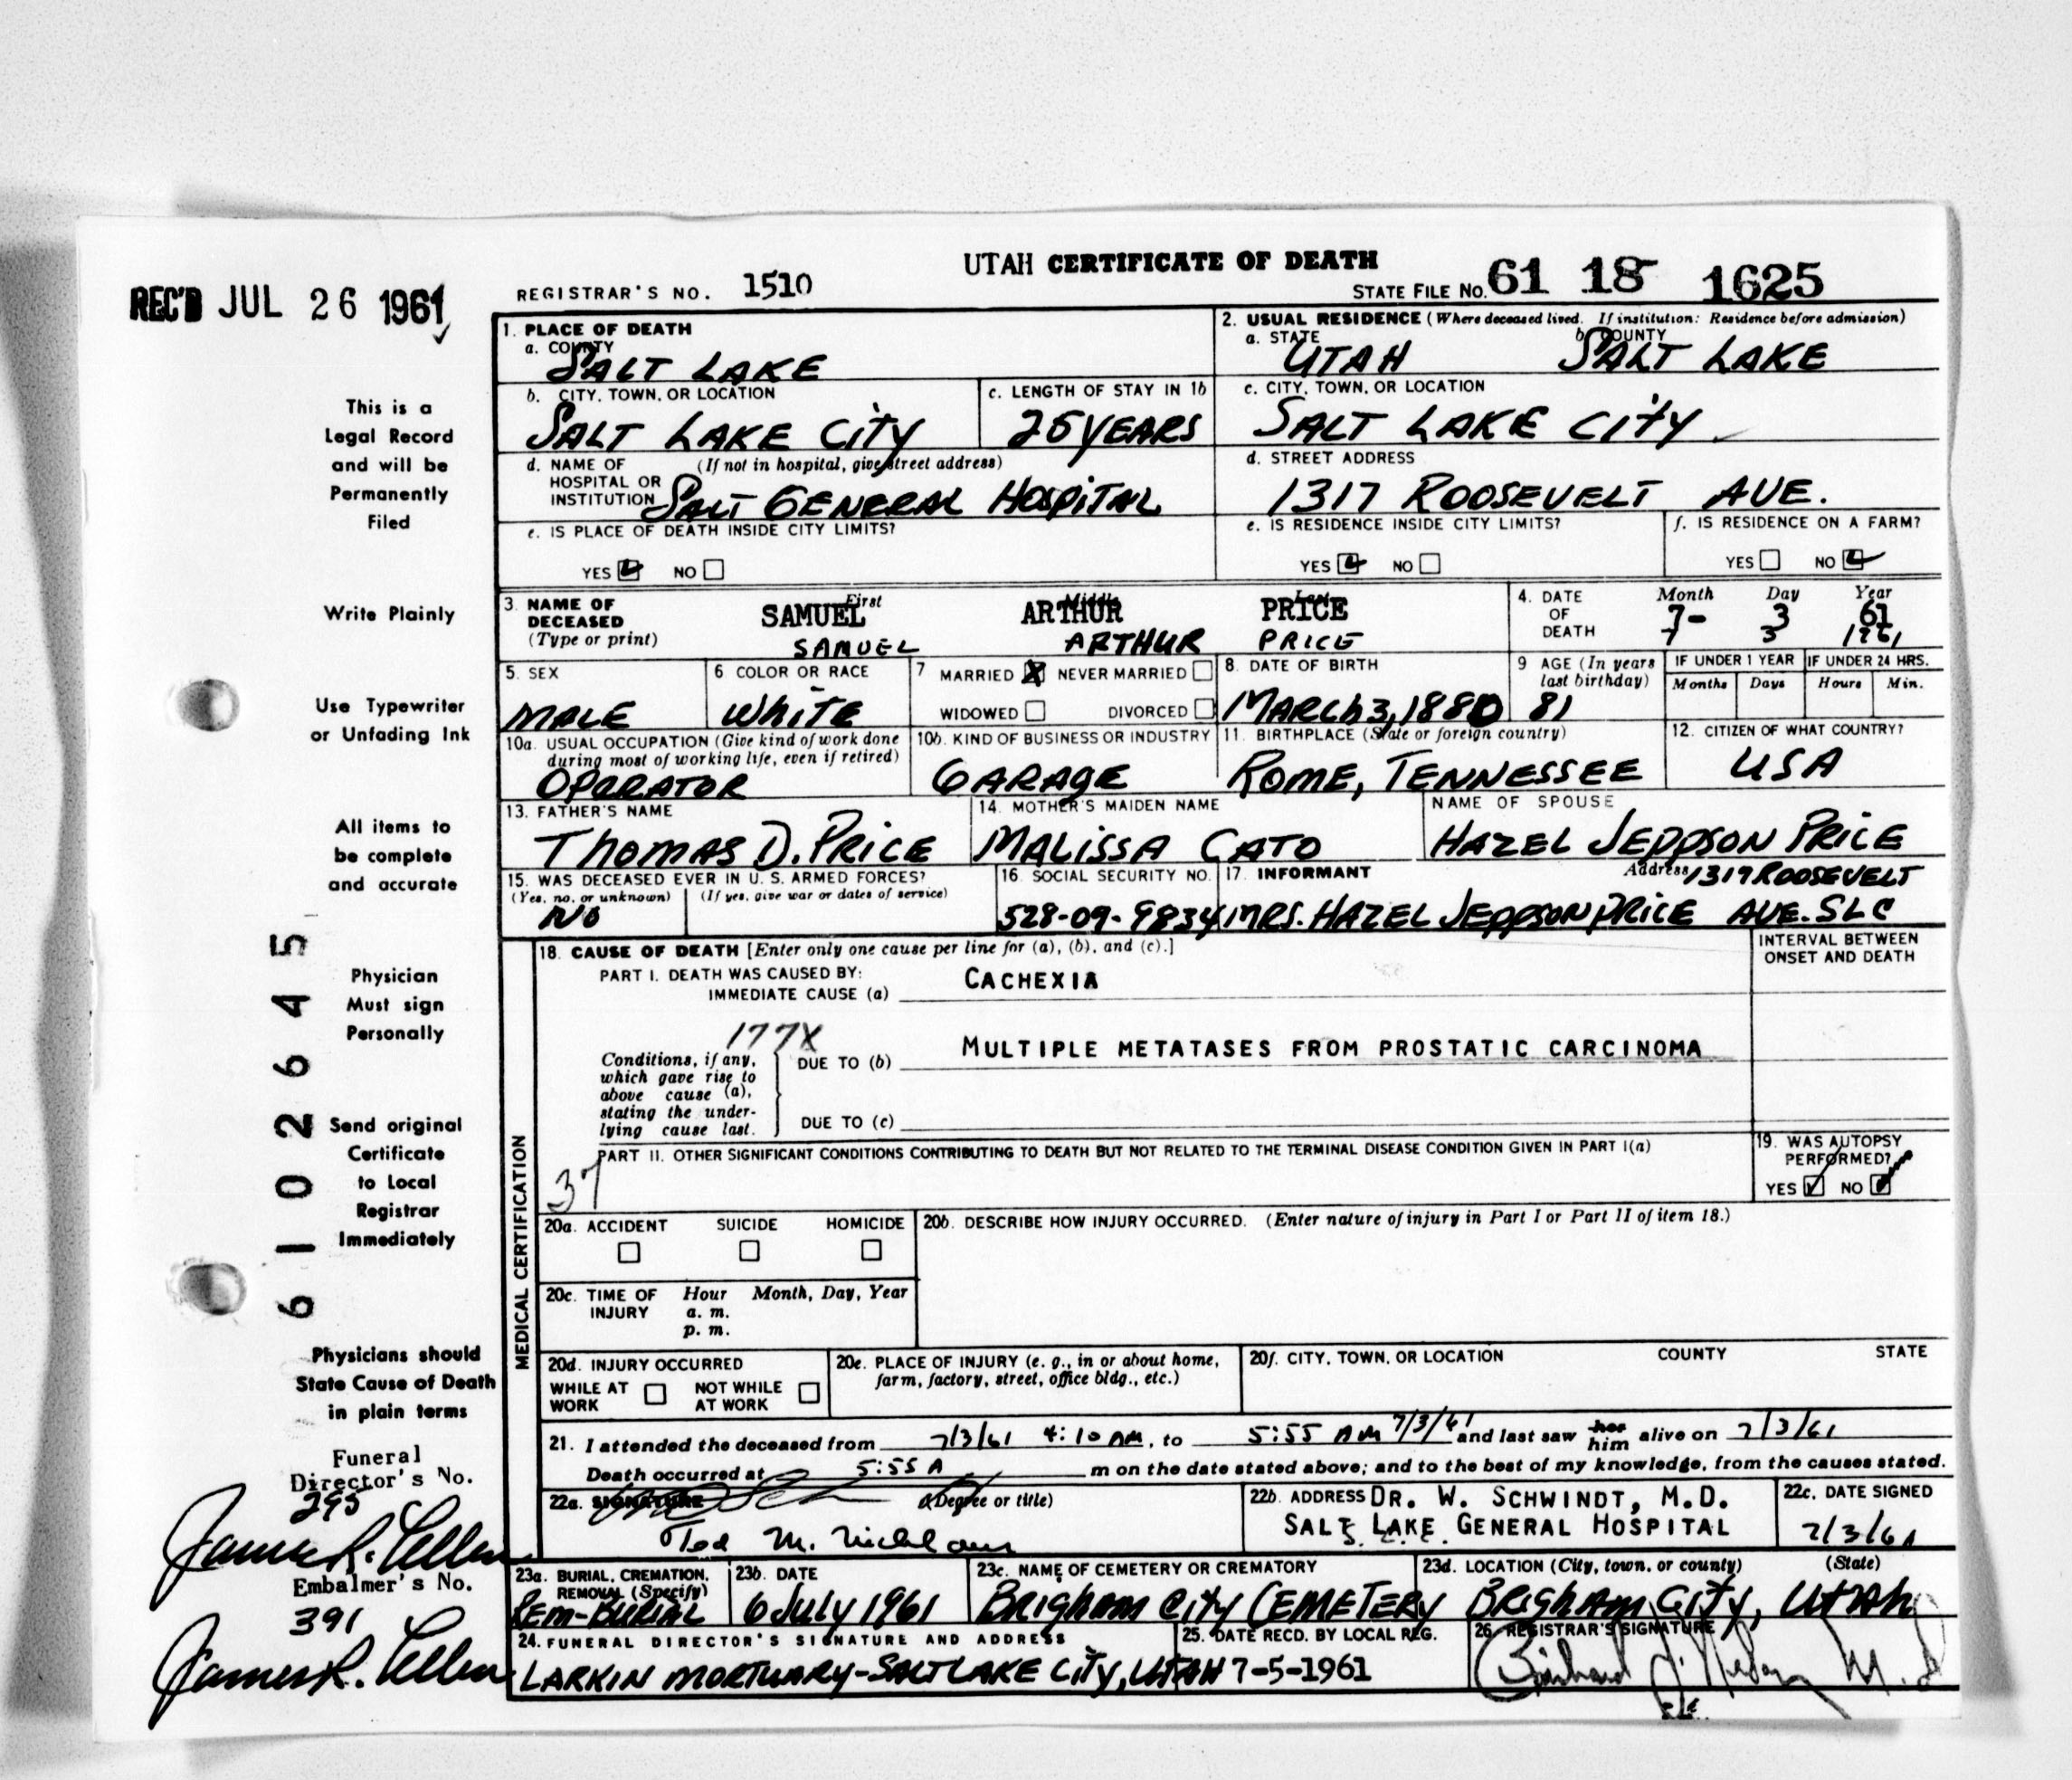 UTAH CERTIFICATE OF DEATH
REC'D JUL 26 1961
REGISTRAR'S NO. 1510
STATE FILE NO. 61 18 1625
This is a
Legal Record
and will be
Permanently
Filed
Write Plainly
Use Typewriter
or Unfading Ink
All items to
be complete
and accurate
Physician
Must sign
Personally
Send original
Certificate
to Local
Registrar
Immediately
Physicians should
State Cause of Death
in plain terms
Funeral
Director's No.
295
James R.
Embalmer's No.
391
James R.
6 1 0 2 6 4 5
1. PLACE OF DEATH
a. COUNTY
SALT LAKE
b. CITY, TOWN, OR LOCATION
SALT LAKE CITY
c. LENGTH OF STAY IN 1b
25 YEARS
d. NAME OF (If not in hospital, give street address)
HOSPITAL OR
INSTITUTION SALT GENERAL HOSPITAL
e. IS PLACE OF DEATH INSIDE CITY LIMITS?
YES NO
2. USUAL RESIDENCE (Where deceased lived. If institution: Residence before admission)
a. STATE b. COUNTY
UTAH SALT LAKE
c. CITY, TOWN, OR LOCATION
SALT LAKE CITY
d. STREET ADDRESS
1317 ROOSEVELT AVE.
e. IS RESIDENCE INSIDE CITY LIMITS?
YES NO
f. IS RESIDENCE ON A FARM?
YES NO
3. NAME OF
DECEASED
(Type or print)
First Middle Last
SAMUEL ARTHUR PRICE
SAMUEL ARTHUR PRICE
4. DATE
OF
DEATH
Month Day Year
7- 3 61
7 3 1961
5. SEX
MALE
6 COLOR OR RACE
WHITE
7 MARRIED X NEVER MARRIED
WIDOWED DIVORCED
8. DATE OF BIRTH
MARCH 3, 1880
9 AGE (In years
last birthday)
81
IF UNDER 1 YEAR IF UNDER 24 HRS.
Months Days Hours Min.
10a. USUAL OCCUPATION (Give kind of work done
during most of working life, even if retired)
OPERATOR
10b. KIND OF BUSINESS OR INDUSTRY
GARAGE
11. BIRTHPLACE (State or foreign country)
ROME, TENNESSEE
12. CITIZEN OF WHAT COUNTRY?
USA
13. FATHER'S NAME
THOMAS D. PRICE
14. MOTHER'S MAIDEN NAME
MALISSA CATO
NAME OF SPOUSE
HAZEL JEPPSON PRICE
15. WAS DECEASED EVER IN U. S. ARMED FORCES?
(Yes, no, or unknown) (If yes, give war or dates of service)
NO
16. SOCIAL SECURITY NO.
528-09-9834
17. INFORMANT Address 1317 ROOSEVELT
MRS. HAZEL JEPPSON PRICE AVE. SLC
MEDICAL CERTIFICATION
18. CAUSE OF DEATH [Enter only one cause per line for (a), (b), and (c).]
PART I. DEATH WAS CAUSED BY:
IMMEDIATE CAUSE (a) CACHEXIA
INTERVAL BETWEEN
ONSET AND DEATH
177X
Conditions, if any,
which gave rise to
above cause (a),
stating the under-
lying cause last.
DUE TO (b) MULTIPLE METATASES FROM PROSTATIC CARCINOMA
DUE TO (c)
PART II. OTHER SIGNIFICANT CONDITIONS CONTRIBUTING TO DEATH BUT NOT RELATED TO THE TERMINAL DISEASE CONDITION GIVEN IN PART I(a)
37
19. WAS AUTOPSY
PERFORMED?
YES NO
20a. ACCIDENT SUICIDE HOMICIDE
20b. DESCRIBE HOW INJURY OCCURRED. (Enter nature of injury in Part I or Part II of item 18.)
20c. TIME OF Hour Month, Day, Year
INJURY a. m.
p. m.
20d. INJURY OCCURRED
WHILE AT NOT WHILE
WORK AT WORK
20e. PLACE OF INJURY (e. g., in or about home,
farm, factory, street, office bldg., etc.)
20f. CITY, TOWN, OR LOCATION COUNTY STATE
21. I attended the deceased from 7/3/61 4:10 AM, to 5:55 AM 7/3/61 and last saw her him alive on 7/3/61
Death occurred at 5:55 A m on the date stated above; and to the best of my knowledge, from the causes stated.
22a. SIGNATURE (Degree or title)
Ted M.
22b. ADDRESS DR. W. SCHWINDT, M.D.
SALT LAKE GENERAL HOSPITAL
22c. DATE SIGNED
7/3/61
23a. BURIAL, CREMATION,
REMOVAL (Specify)
REM-BURIAL
23b. DATE
6 JULY 1961
23c. NAME OF CEMETERY OR CREMATORY
BRIGHAM CITY CEMETERY
23d. LOCATION (City, town, or county) (State)
BRIGHAM CITY, UTAH
24. FUNERAL DIRECTOR'S SIGNATURE AND ADDRESS
LARKIN MORTUARY-SALT LAKE CITY, UTAH
25. DATE RECD. BY LOCAL REG.
7-5-1961
26. REGISTRAR'S SIGNATURE
M.D